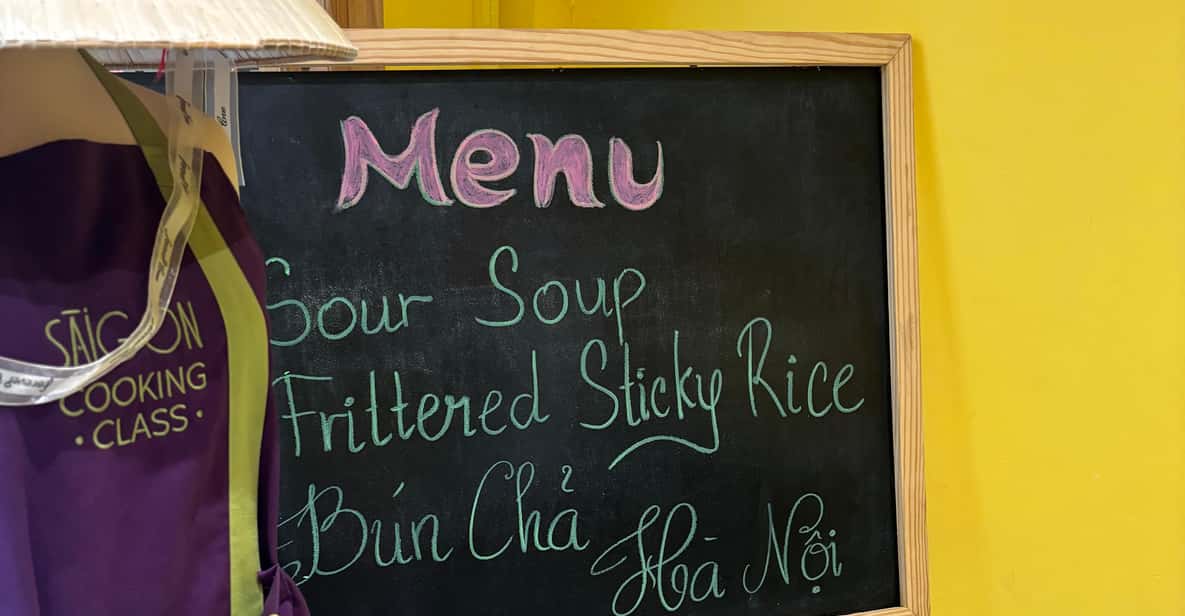 Menu
Sour Soup
Frittered Sticky Rice
Bún Chả
Hà Nội
SÀIGON
COOKING
• CLASS •